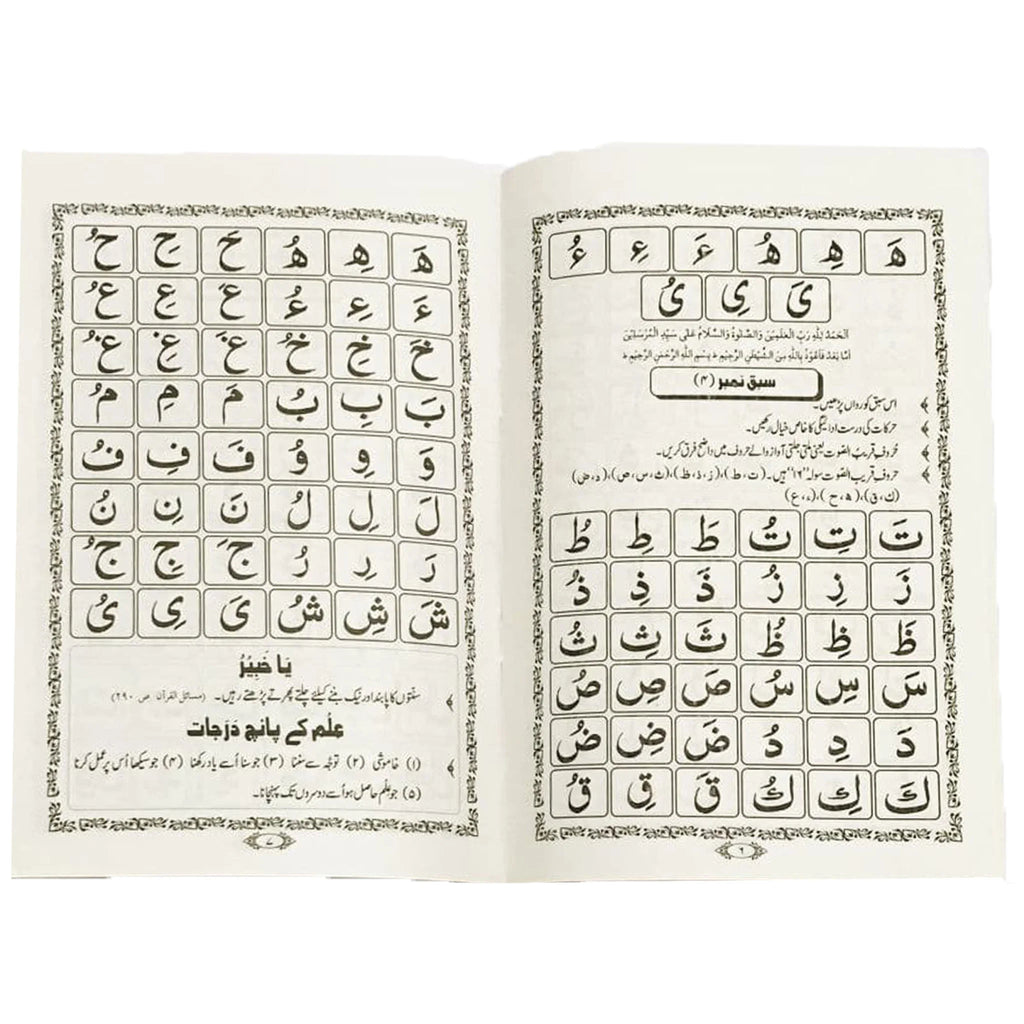 هَ هِ هُ ءَ ءِ ءُ
یَ یِ یُ
اَلْحَمْدُ لِلّٰهِ رَبِّ الْعٰلَمِیْنَ وَالصَّلٰوةُ وَالسَّلَامُ عَلٰی سَیِّدِ الْمُرْسَلِیْنَ
اَمَّا بَعْدُ فَاَعُوْذُ بِاللّٰهِ مِنَ الشَّیْطٰنِ الرَّجِیْمِ ؕ بِسْمِ اللّٰهِ الرَّحْمٰنِ الرَّحِیْمِ ؕ
سبق نمبر (۴)
اس سبق کو رواں پڑھیں۔
حرکات کی درست ادائیگی کا خاص خیال رکھیں۔
حُروفِ قریبُ الصَّوت یعنی ملتی جلتی آواز والے حروف میں واضح فرق کریں۔
حروفِ قریب الصَّوت سولہ “۱۶” ہیں۔ (ت ، ط)،(ز ، ذ ، ظ)،(ث ، س ، ص)،(د ، ض)
(ك ، ق)،(ھ ، ح)،(ء ، ع)
تَ تِ تُ طَ طِ طُ
زَ زِ زُ ذَ ذِ ذُ
ظَ ظِ ظُ ثَ ثِ ثُ
سَ سِ سُ صَ صِ صُ
دَ دِ دُ ضَ ضِ ضُ
كَ كِ كُ قَ قِ قُ
۶
هَ هِ هُ حَ حِ حُ
ءَ ءِ ءُ عَ عِ عُ
خَ خِ خُ غَ غِ غُ
بَ بِ بُ مَ مِ مُ
وَ وِ وُ فَ فِ فُ
لَ لِ لُ نَ نِ نُ
رَ رِ رُ جَ جِ جُ
شَ شِ شُ یَ یِ یُ
یَا خَبِیْرُ
سنّتوں کا پابند اور نیک بننے کیلئے چلتے پھرتے پڑھتے رہیں۔ (مسائل القرآن ص ۲۹۰)
عِلْم کے پانچ دَرَجات
(۱) خاموشی (۲) توجّہ سے سننا (۳) جو سنا اُسے یاد رکھنا (۴) جو سیکھا اُس پر عمل کرنا
(۵) جو عِلْم حاصل ہو اُسے دوسروں تک پہنچانا۔
۷